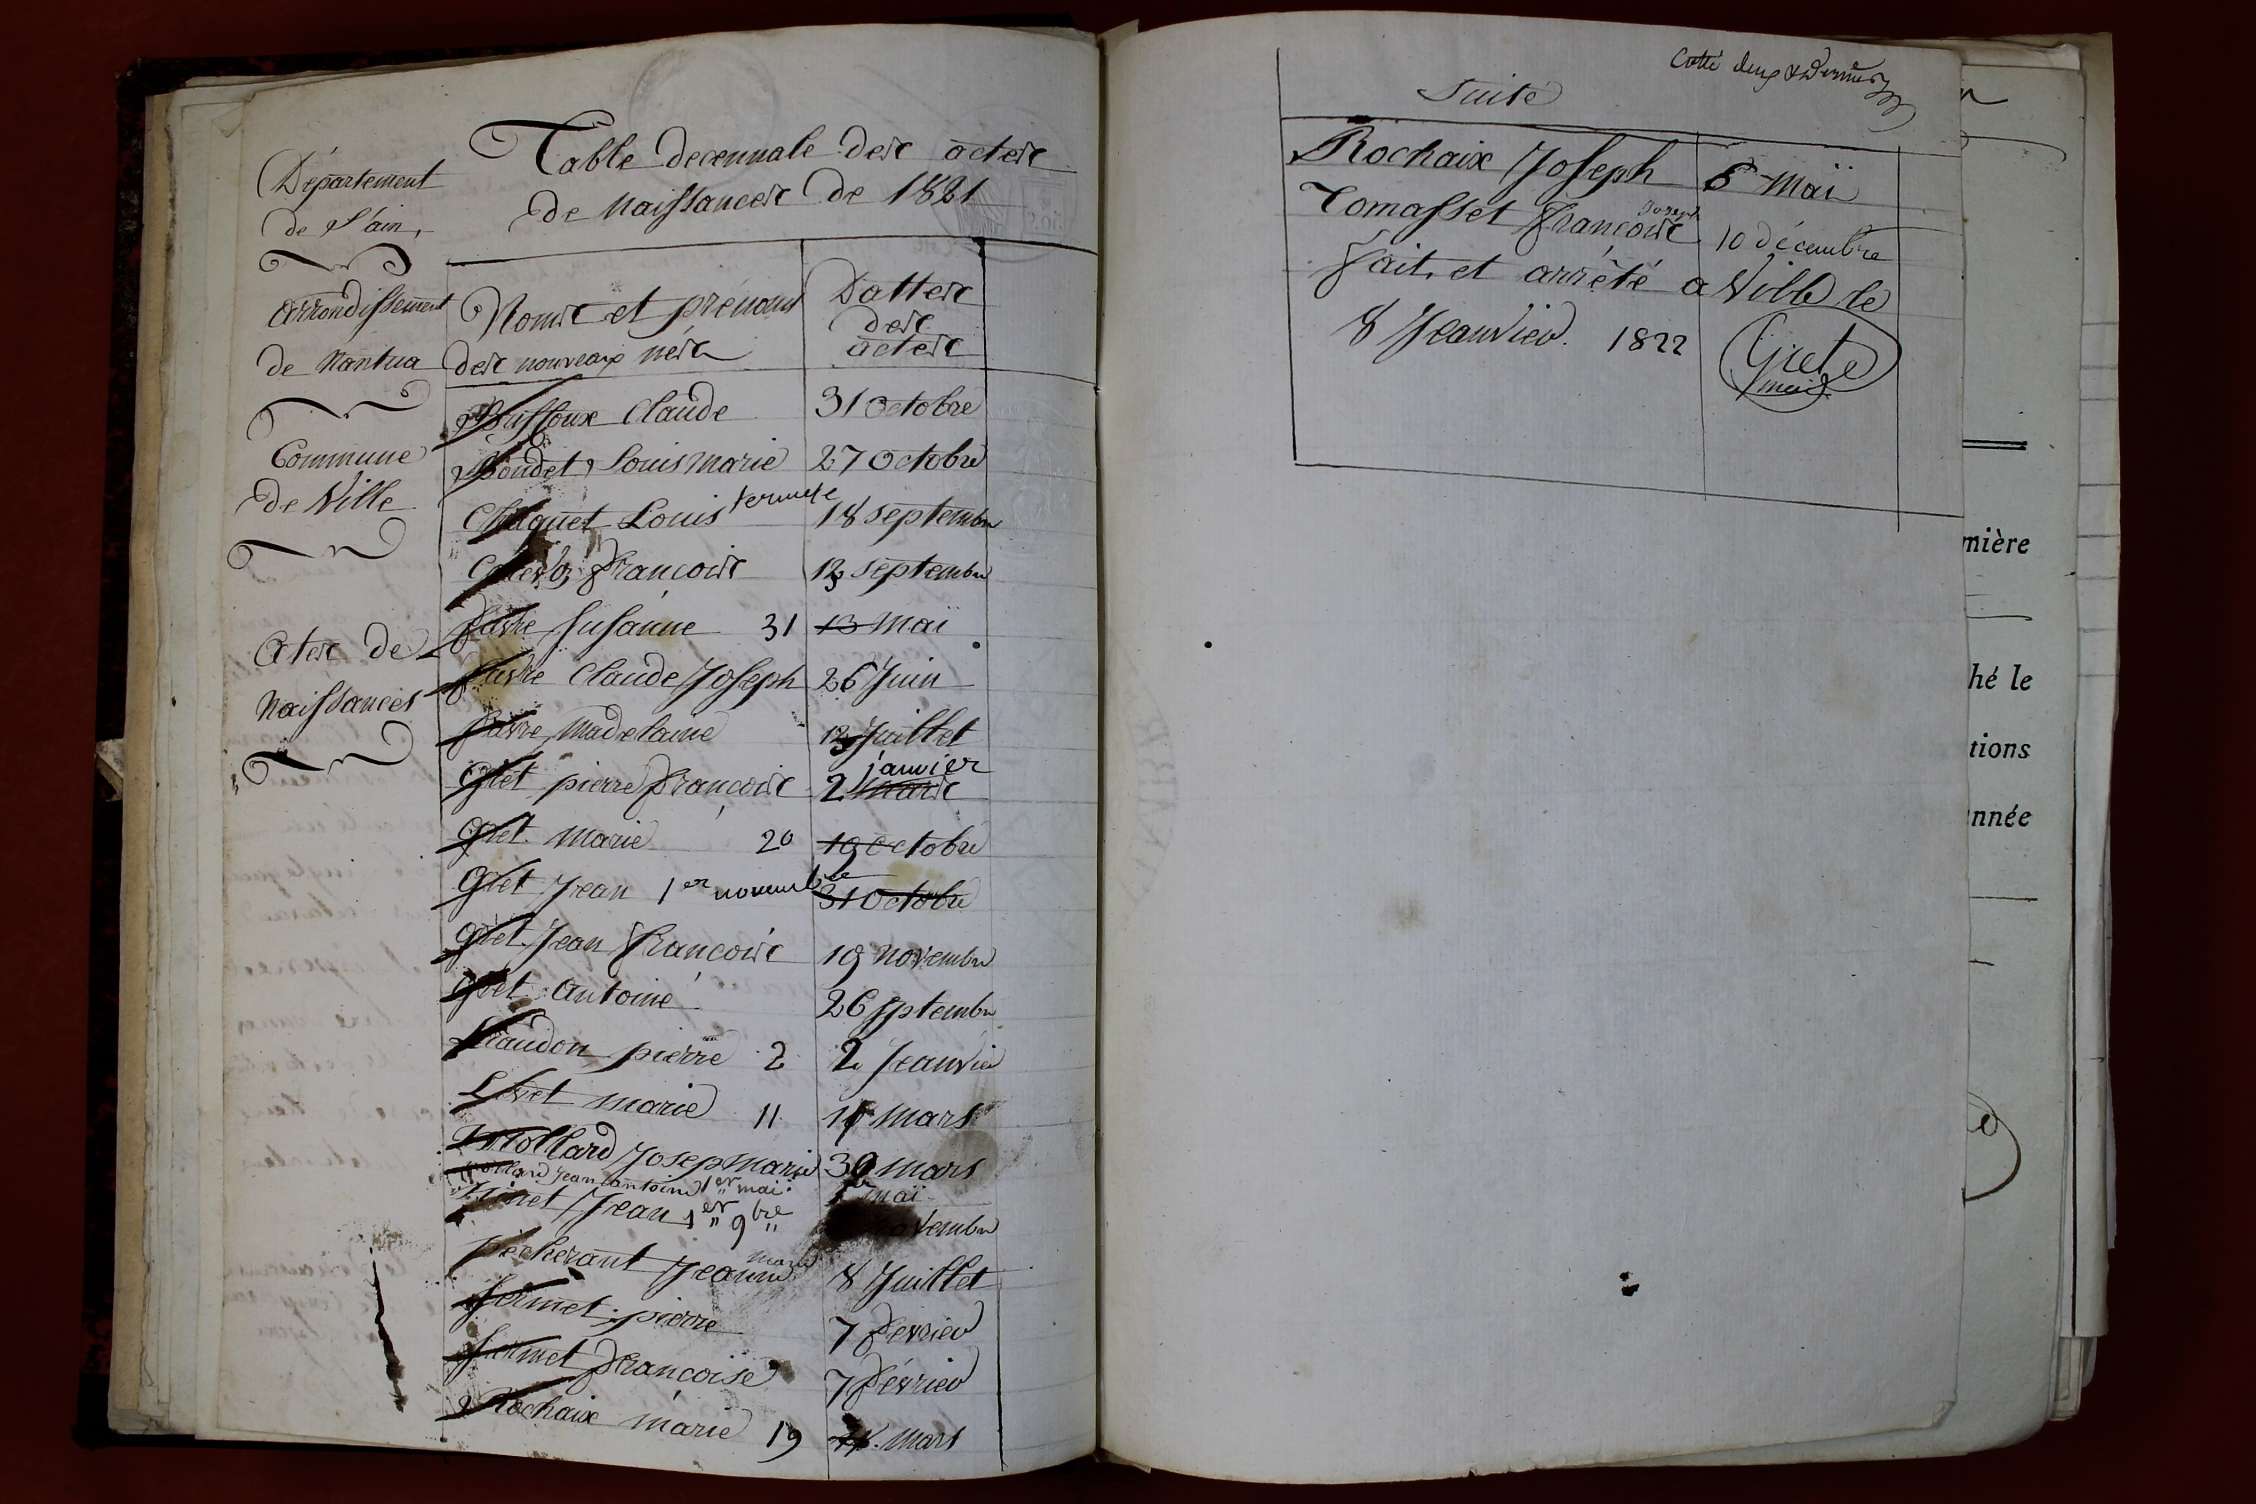 Département
de l'ain,
arrondissement
de Nantua
Commune
de Ville
Actes de
Naissances
Table decennale des actes
de Naissances de 1821
Noms et prénoms
des nouveaux nés
Dattes
des
actes
Buffoux Claude 31 Octobre
Boudet Louis Marie 27 Octobre
Chaquet Louis 18 septembre
françois 12 septembre
favre Susanne 31 13 Mai
favre Claude Joseph 26 Juin
favre Madelaine 12 Juillet
janvier
Gret pierre françois 2 Mars
Gret Marie 20 19 Octobre
Gret Jean 1er novembre 31 Octobre
Gret Jean françois 19 Novembre
Gret Antoine 26 septembre
pierre 2 2 Jeanvier
Livet marie 11 mars
Mollard Josep Marie 30 mars
Mollard Jean antoine 1er mai mai
Jean 1er 9bre Novembre
marie
pecherant Jeanne 8 Juillet
pierre 7 février
françoise 7 février
Rochaix marie 19 mars
Cotté deux & Dernier
Suite
Rochaix Joseph 6 Maï
Joseph
Tomasset françois 10 décembre
fait et arrêté a Ville le
8 Jeanvier 1822
Gret
maire
mière
hé le
tions
nnée